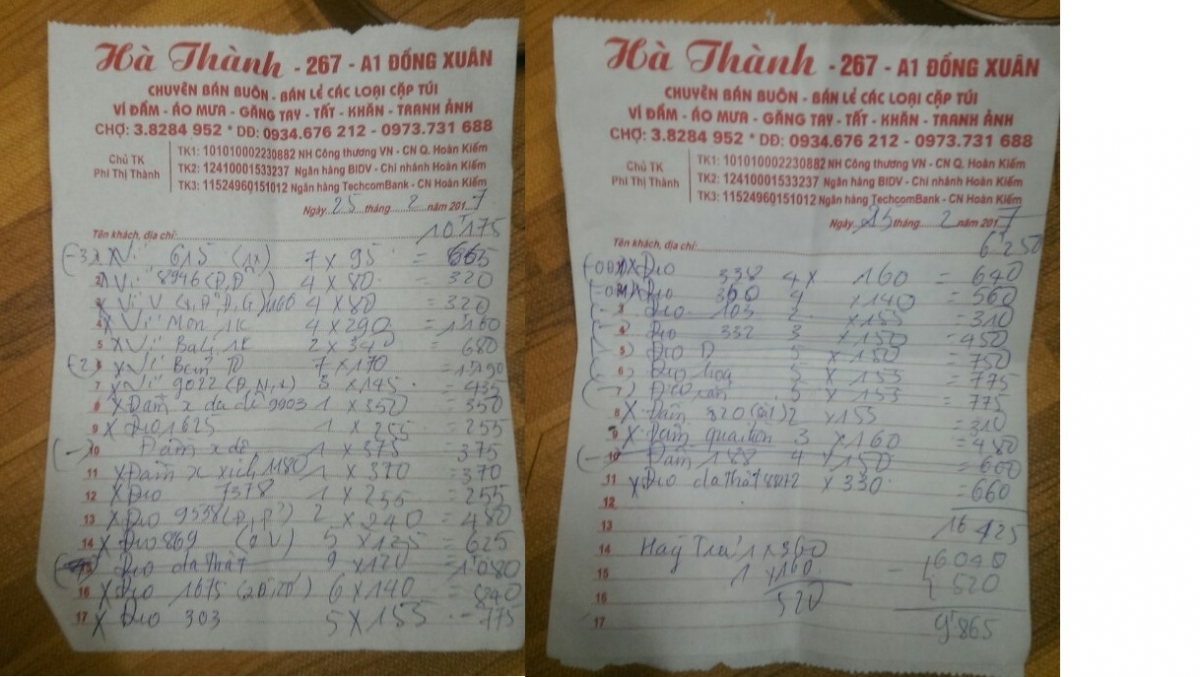 Hà Thành - 267 - A1 ĐỒNG XUÂN
CHUYÊN BÁN BUÔN - BÁN LẺ CÁC LOẠI CẶP TÚI
VÍ ĐẦM - ÁO MƯA - GĂNG TAY - TẤT - KHĂN - TRANH ẢNH
CHỢ: 3.8284 952 * DĐ: 0934.676 212 - 0973.731 688
Chủ TK
Phí Thị Thành
TK1: 101010002230882 NH Công thương VN - CN Q. Hoàn Kiếm
TK2: 12410001533237 Ngân hàng BIDV - Chi nhánh Hoàn Kiếm
TK3: 11524960151012 Ngân hàng TechcomBank - CN Hoàn Kiếm
Ngày 25 tháng 2 năm 2017
Tên khách, địa chỉ: 10'175
Ví 615 (1x) 7 x 95 = 665
2 x Ví 8946 (Đ,Đ) 4 x 80 = 320
x Ví V 4 x 80 = 320
4 x Ví Mon 1K 4 x 290 = 1'160
5 x Ví Bali 1K 2 x 340 = 680
6 x Ví 7 x 170 = 1'190
7 x Ví 9022 (Đ,N,x) 3 x 145 = 435
8 x Đầm x da dê 9903 1 x 350 = 350
9 x Đeo 1625 1 x 255 = 255
10 Đầm x dê 1 x 375 = 375
11 x Đầm x xích 1180 1 x 370 = 370
12 x Đeo 7378 1 x 255 = 255
13 x Đeo 9538 2 x 240 = 480
14 x Đeo 869 5 x 125 = 625
15 Đeo da thật 9 x 120 = 1'080
16 x Đeo 1675 6 x 140 = 840
17 x Đeo 303 5 x 155 - 775
Hà Thành - 267 - A1 ĐỒNG XUÂN
CHUYÊN BÁN BUÔN - BÁN LẺ CÁC LOẠI CẶP TÚI
VÍ ĐẦM - ÁO MƯA - GĂNG TAY - TẤT - KHĂN - TRANH ẢNH
CHỢ: 3.8284 952 * DĐ: 0934.676 212 - 0973.731 688
Chủ TK
Phí Thị Thành
TK1: 101010002230882 NH Công thương VN - CN Q. Hoàn Kiếm
TK2: 12410001533237 Ngân hàng BIDV - Chi nhánh Hoàn Kiếm
TK3: 11524960151012 Ngân hàng TechcomBank - CN Hoàn Kiếm
Ngày 25 tháng 2 năm 2017
Tên khách, địa chỉ: 6'250
x Đeo 338 4 x 160 = 640
Đeo 360 4 x 140 = 560
3 Đeo 103 2 x 155 = 310
4 Đeo 332 3 x 150 = 450
5 Đeo D 5 x 150 = 750
6 Đeo hoa 5 x 155 = 775
7 Đeo 5 x 155 = 775
8 x Đầm 820 2 x 155 = 310
9 x Đầm 3 x 160 = 480
10 Đầm 188 4 x 150 = 600
11 x Đeo da thật 2 x 330 = 660
12
13 16'425
14 Hàng Trả 1 x 360
15 1 x 160 - 6'040
16 520 520
17 9'865